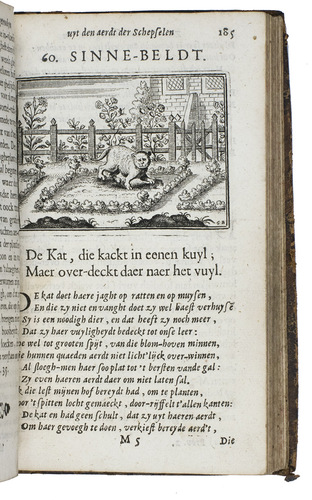 uyt den aerdt der Schepselen 185
60. SINNE-BELDT.
De Kat, die kackt in eenen kuyl;
Maer over-deckt daer naer het vuyl.
DE kat doet haere jaght op ratten en op muysen,
En die zy niet en vanght doet zy wel haest verhuysen
Sy is een noodigh dier, en dat heeft zy noch meer,
Dat zy haer vuyligheydt bedeckt tot onse leer:
me wel tot grooten spijt, van die blom-hoven minnen,
ie hunnen quaeden aerdt niet licht'lijck over-winnen,
Al sloegh-men haer soo plat tot 't bersten vande gal:
Zy even haeren aerdt daer om niet laten sal.
die lest mijnen hof bereydt had, om te planten,
oor 't spitten locht gemaeckt, door-rijffelt t'allen kanten:
De kat en had geen schult, dat zy uyt haeren aerdt,
Om haer gevoegh te doen, verkiest bereyde aerd',
M 5 Die